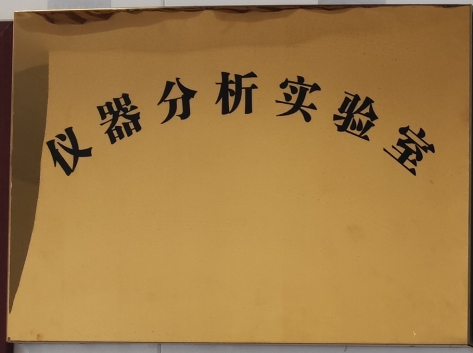 仪器分析实验室